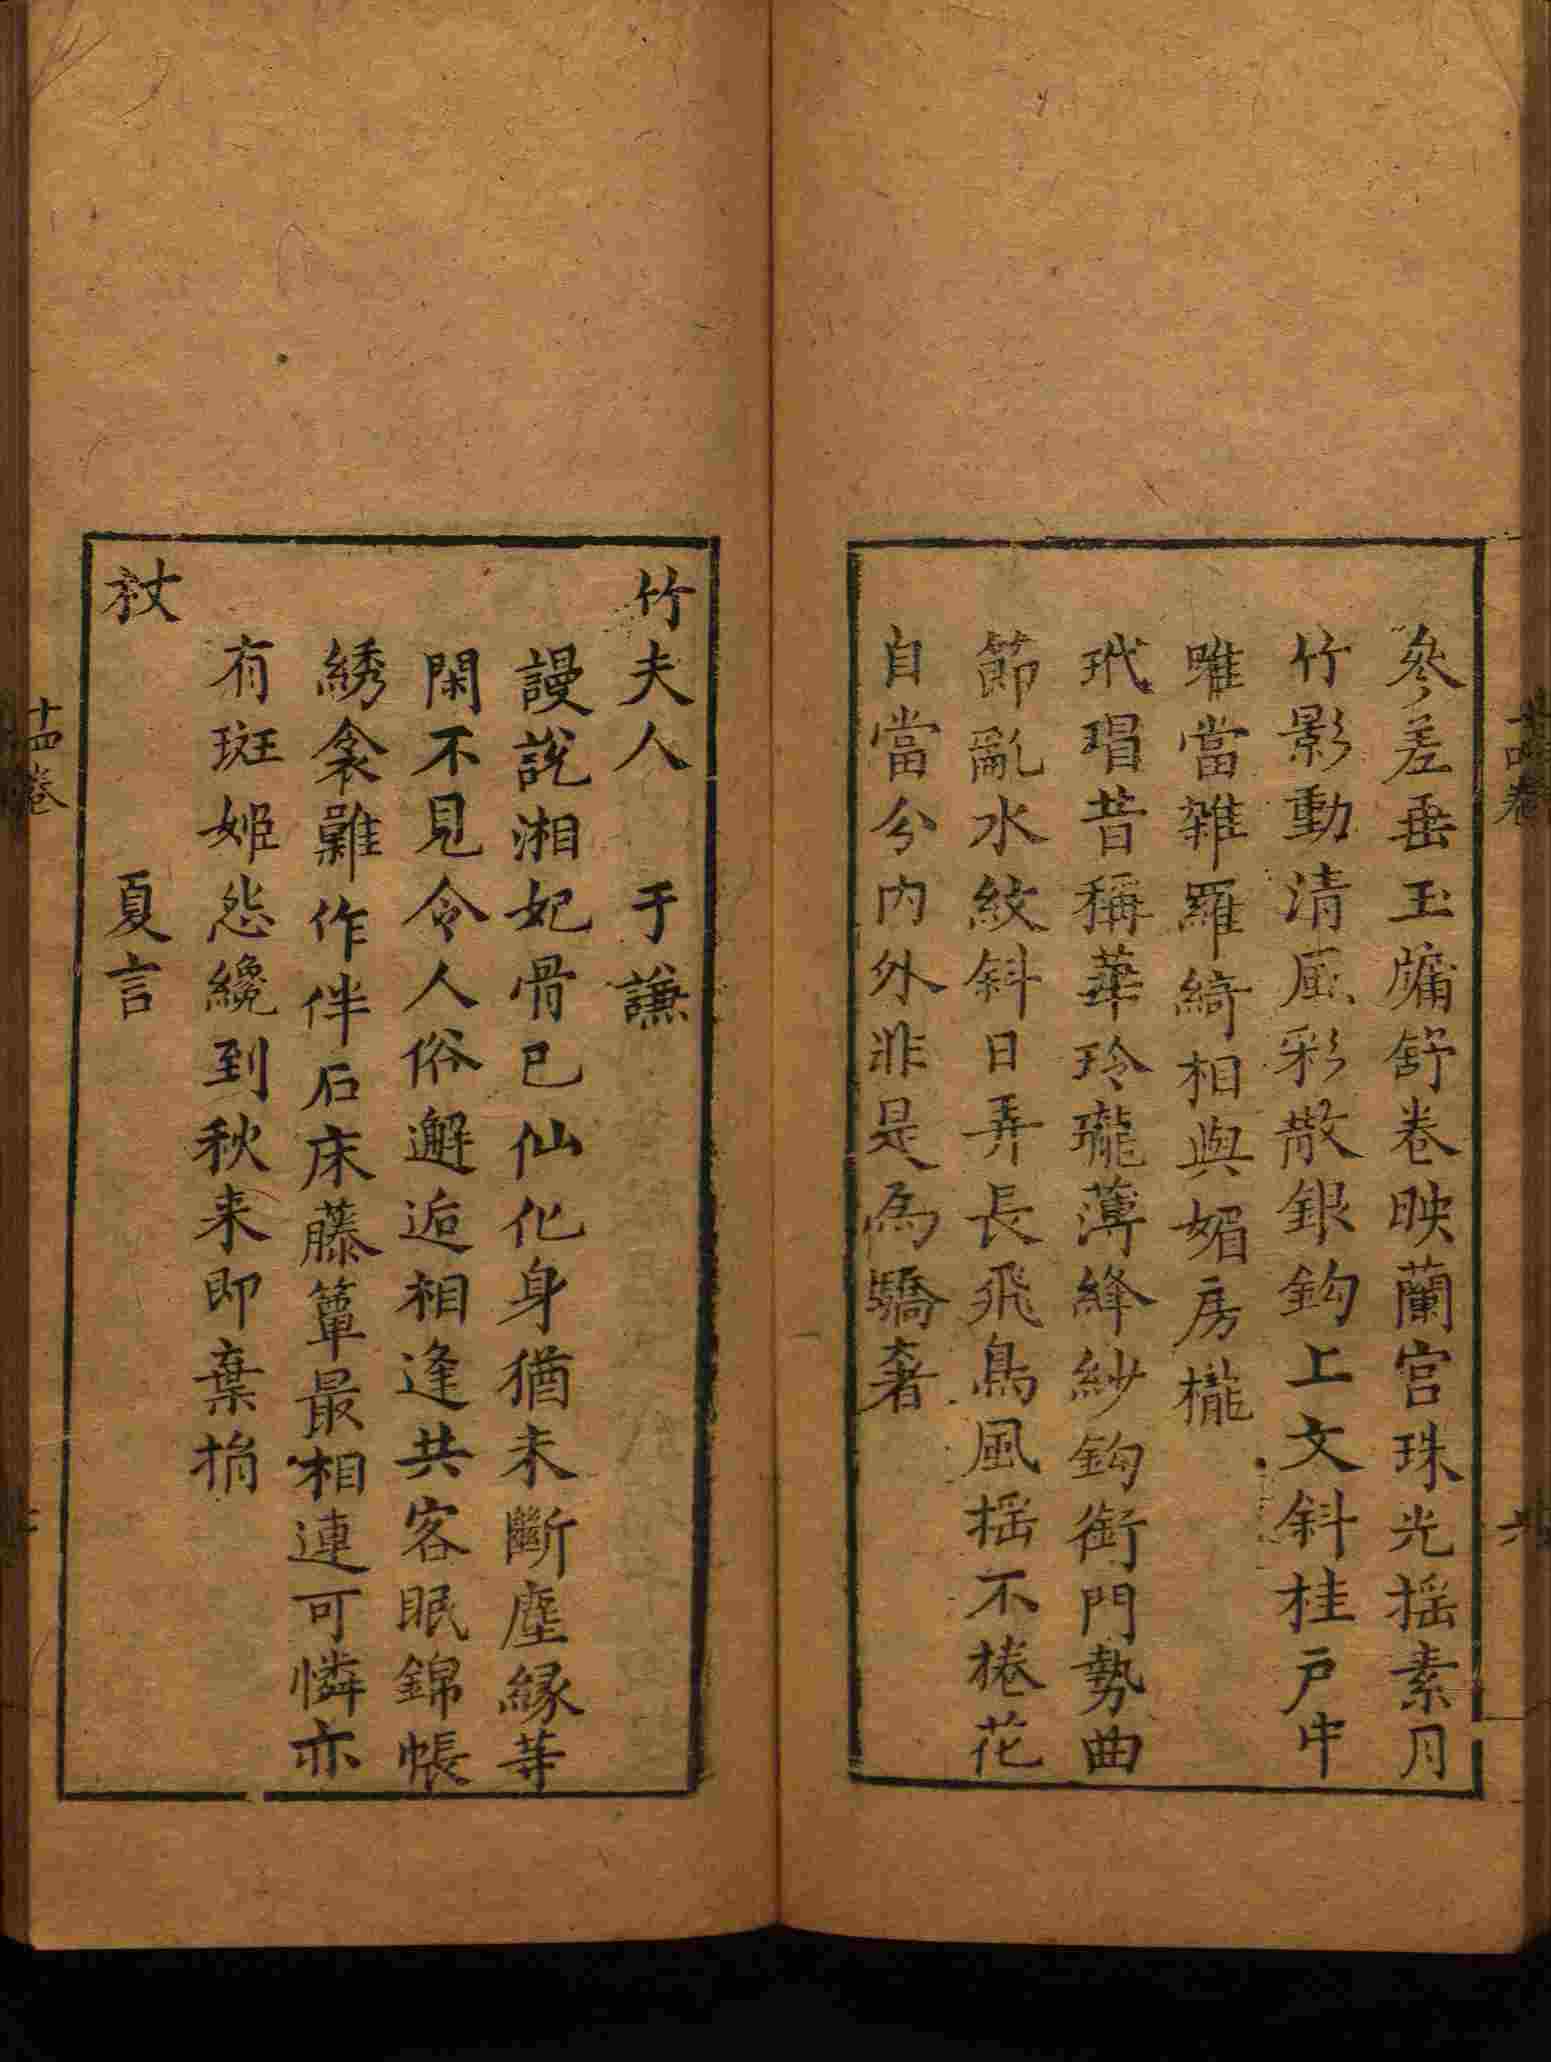 參差垂玉牖舒卷映蘭宮珠光摇素月
竹影動清風彩散銀鈎上文斜桂戶中
唯當雜羅綺相與媚房櫳
玳瑁昔稱華玲瓏薄絳紗鈎銜門勢曲
節亂水紋斜日弄長飛鳥風揺不捲花
自當分内外非是為驕奢
竹夫人　于謙
謾說湘妃骨已仙化身猶未斷塵緣等
閑不見令人俗邂逅相逢共客眠錦帳
綉衾難作伴石床藤簟最相連可憐亦
有斑姬怨纔到秋来即棄捐
杖　夏言
十四卷
十四卷
六